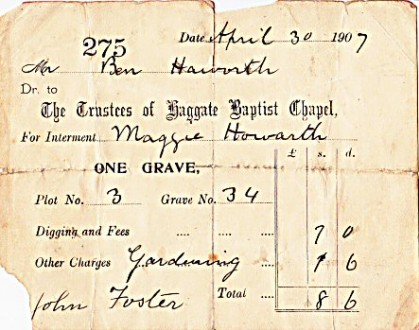 275 Date April 30 1907
Mr Ben Haworth
Dr. to
The Trustees of Haggate Baptist Chapel,
For Interment Maggie Howarth
ONE GRAVE, £ s. d.
Plot No. 3 Grave No. 34
Digging and Fees .... .... 7 0
Other Charges Gardening .... 1 6
John Foster Total .... 8 6